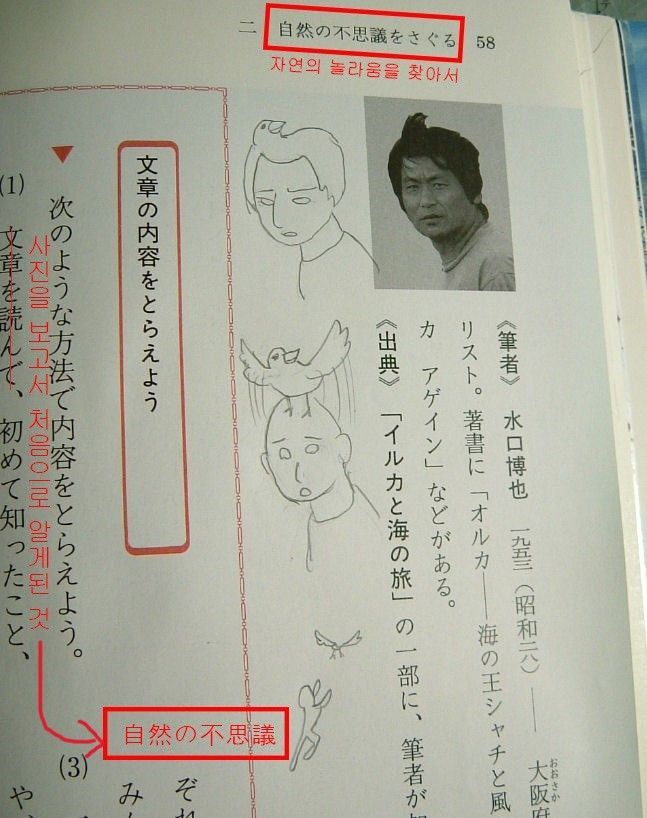 二 自然の不思議をさぐる 58
자연의 놀라움을 찾아서
《筆者》 水口博也 一九五三(昭和二八)―― 大阪府
おおさか
リスト。著書に「オルカ――海の王シャチと風
カ アゲイン」などがある。
《出典》「イルカと海の旅」の一部に、筆者が
文章の内容をとらえよう
▼ 次のような方法で内容をとらえよう。
(1) 文章を読んで、初めて知ったこと、
사진을 보고서 처음으로 알게된 것
自然の不思議
(3)
ぞれ
みん
や